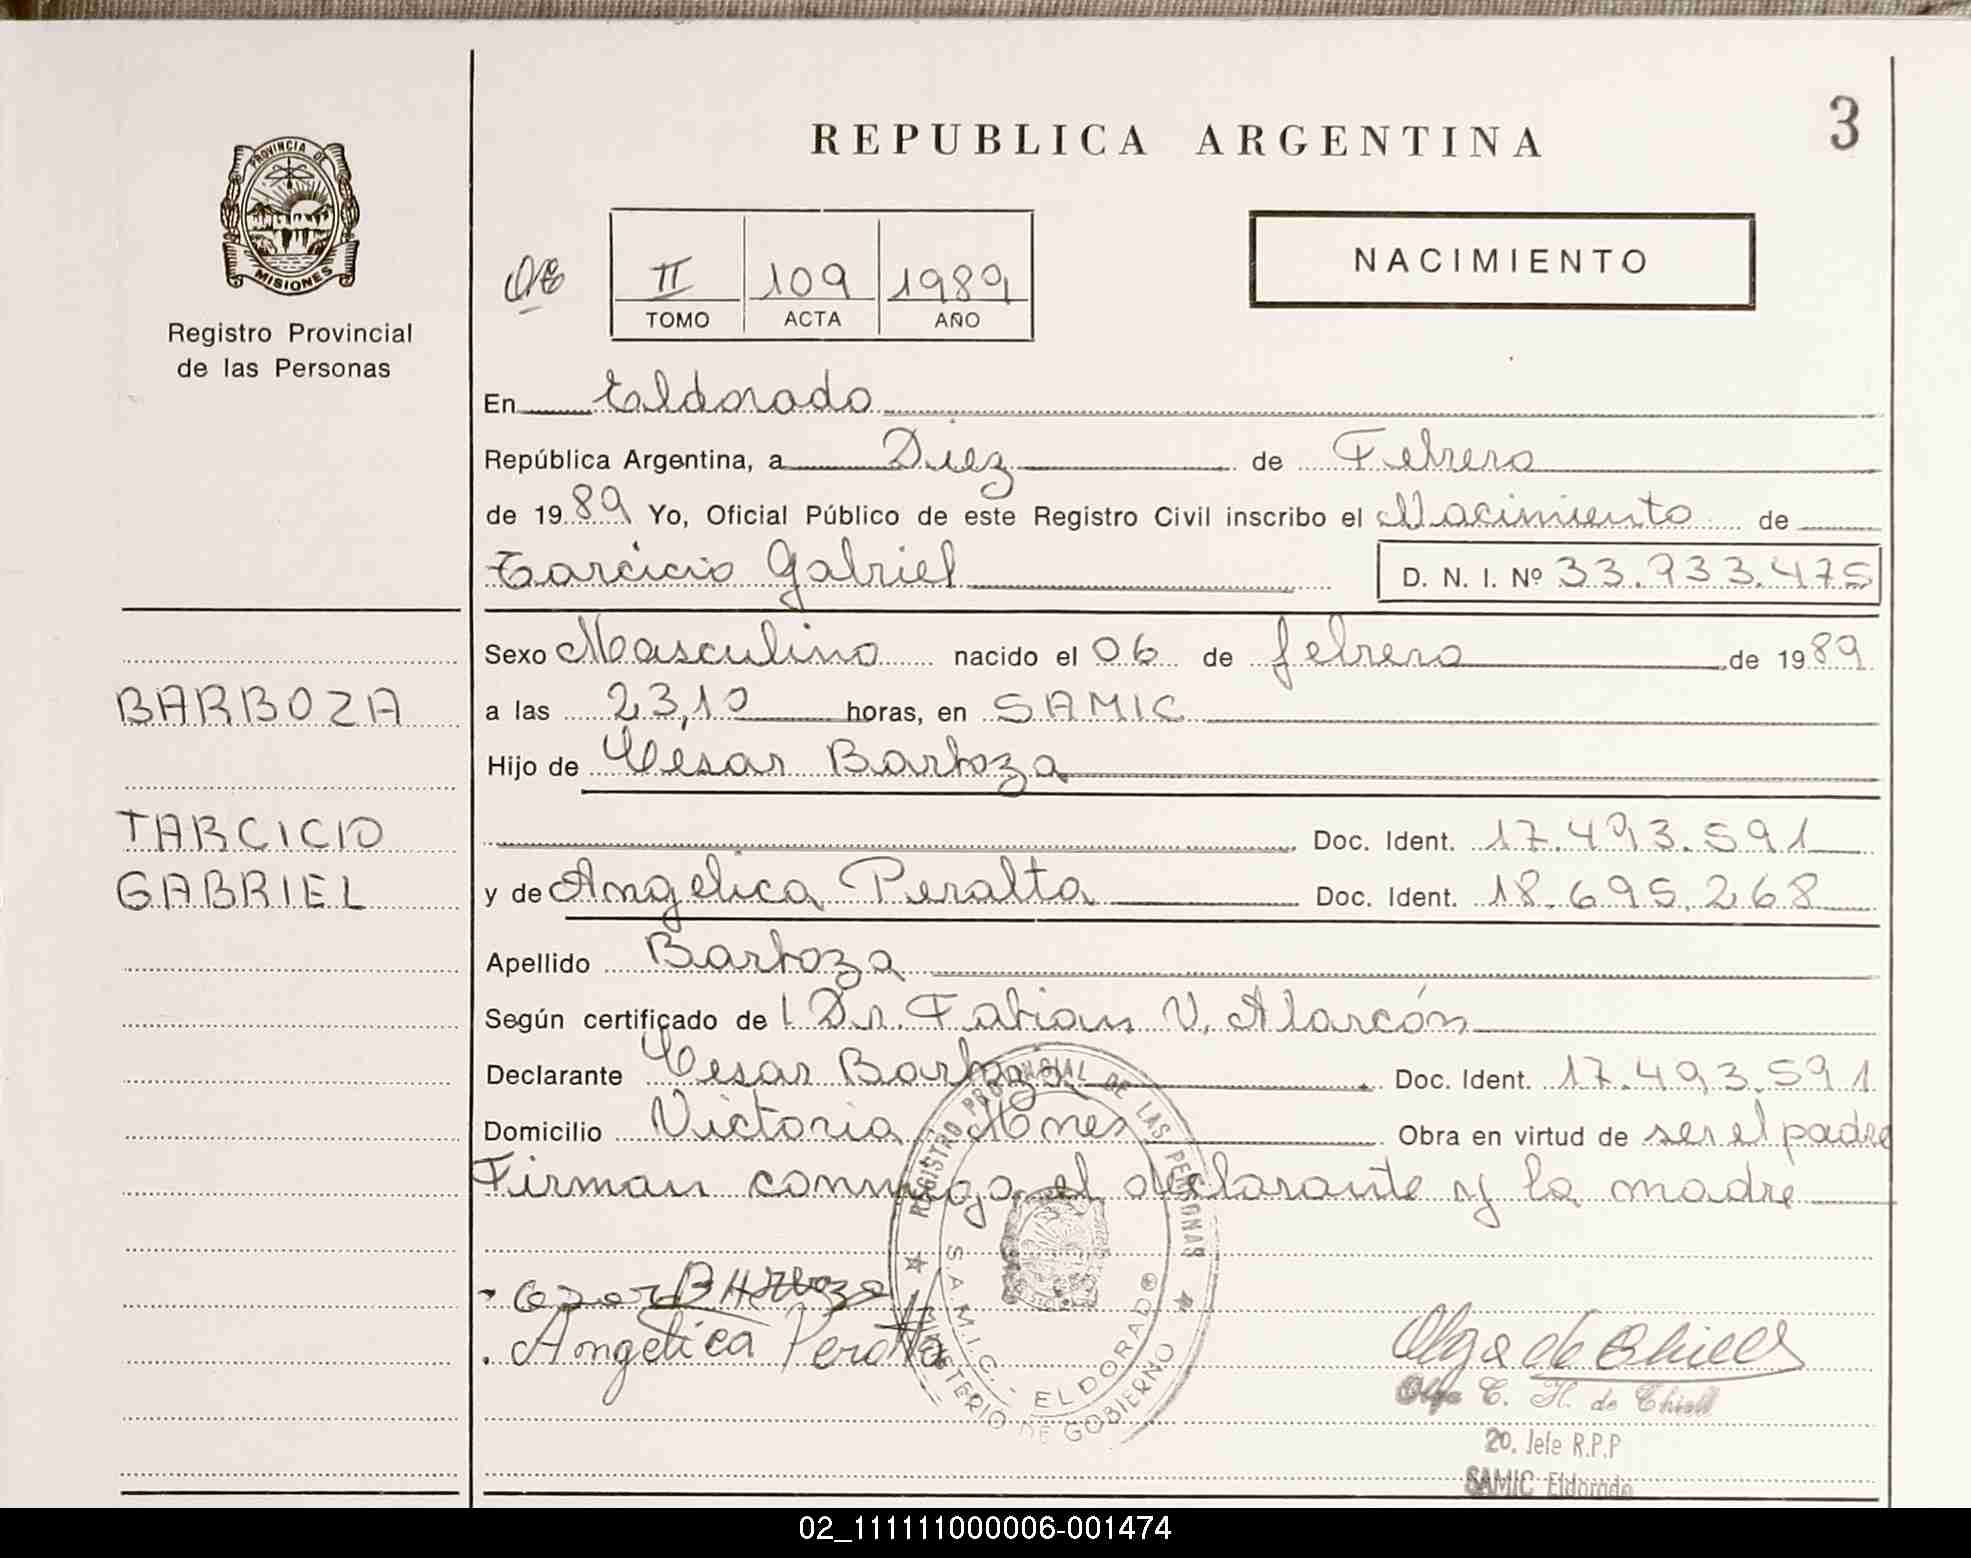 REPUBLICA ARGENTINA
3
PROVINCIA DE
MISIONES
Registro Provincial
de las Personas
II 109 1989
TOMO ACTA AÑO
NACIMIENTO
En Eldorado
República Argentina, a Diez de Febrero
de 1989 Yo, Oficial Público de este Registro Civil inscribo el Nacimiento de
Tarcicio Gabriel D. N. I. Nº 33.933.475
Sexo Masculino nacido el 06 de febrero de 1989
BARBOZA
a las 23,10 horas, en SAMIC
Hijo de Cesar Barboza
TARCICIO
Doc. Ident. 17.493.591
GABRIEL
y de Angelica Peralta Doc. Ident. 18.695.268
Apellido Barboza
Según certificado de l Dr. Fabian V. Alarcón
Declarante Cesar Barboza Doc. Ident. 17.493.591
Domicilio Victoria Mnes Obra en virtud de ser el padre
Firman conmigo el declarante y la madre
REGISTRO PROVINCIAL DE LAS PERSONAS
S.A.M.I.C. - ELDORADO
MINISTERIO DE GOBIERNO
Cesar BARboza
Angelica Peralta
Olga de Thiell
Olga C. H. de Thiell
20. Jefe R.P.P
SAMIC Eldorado
02_111111000006-001474